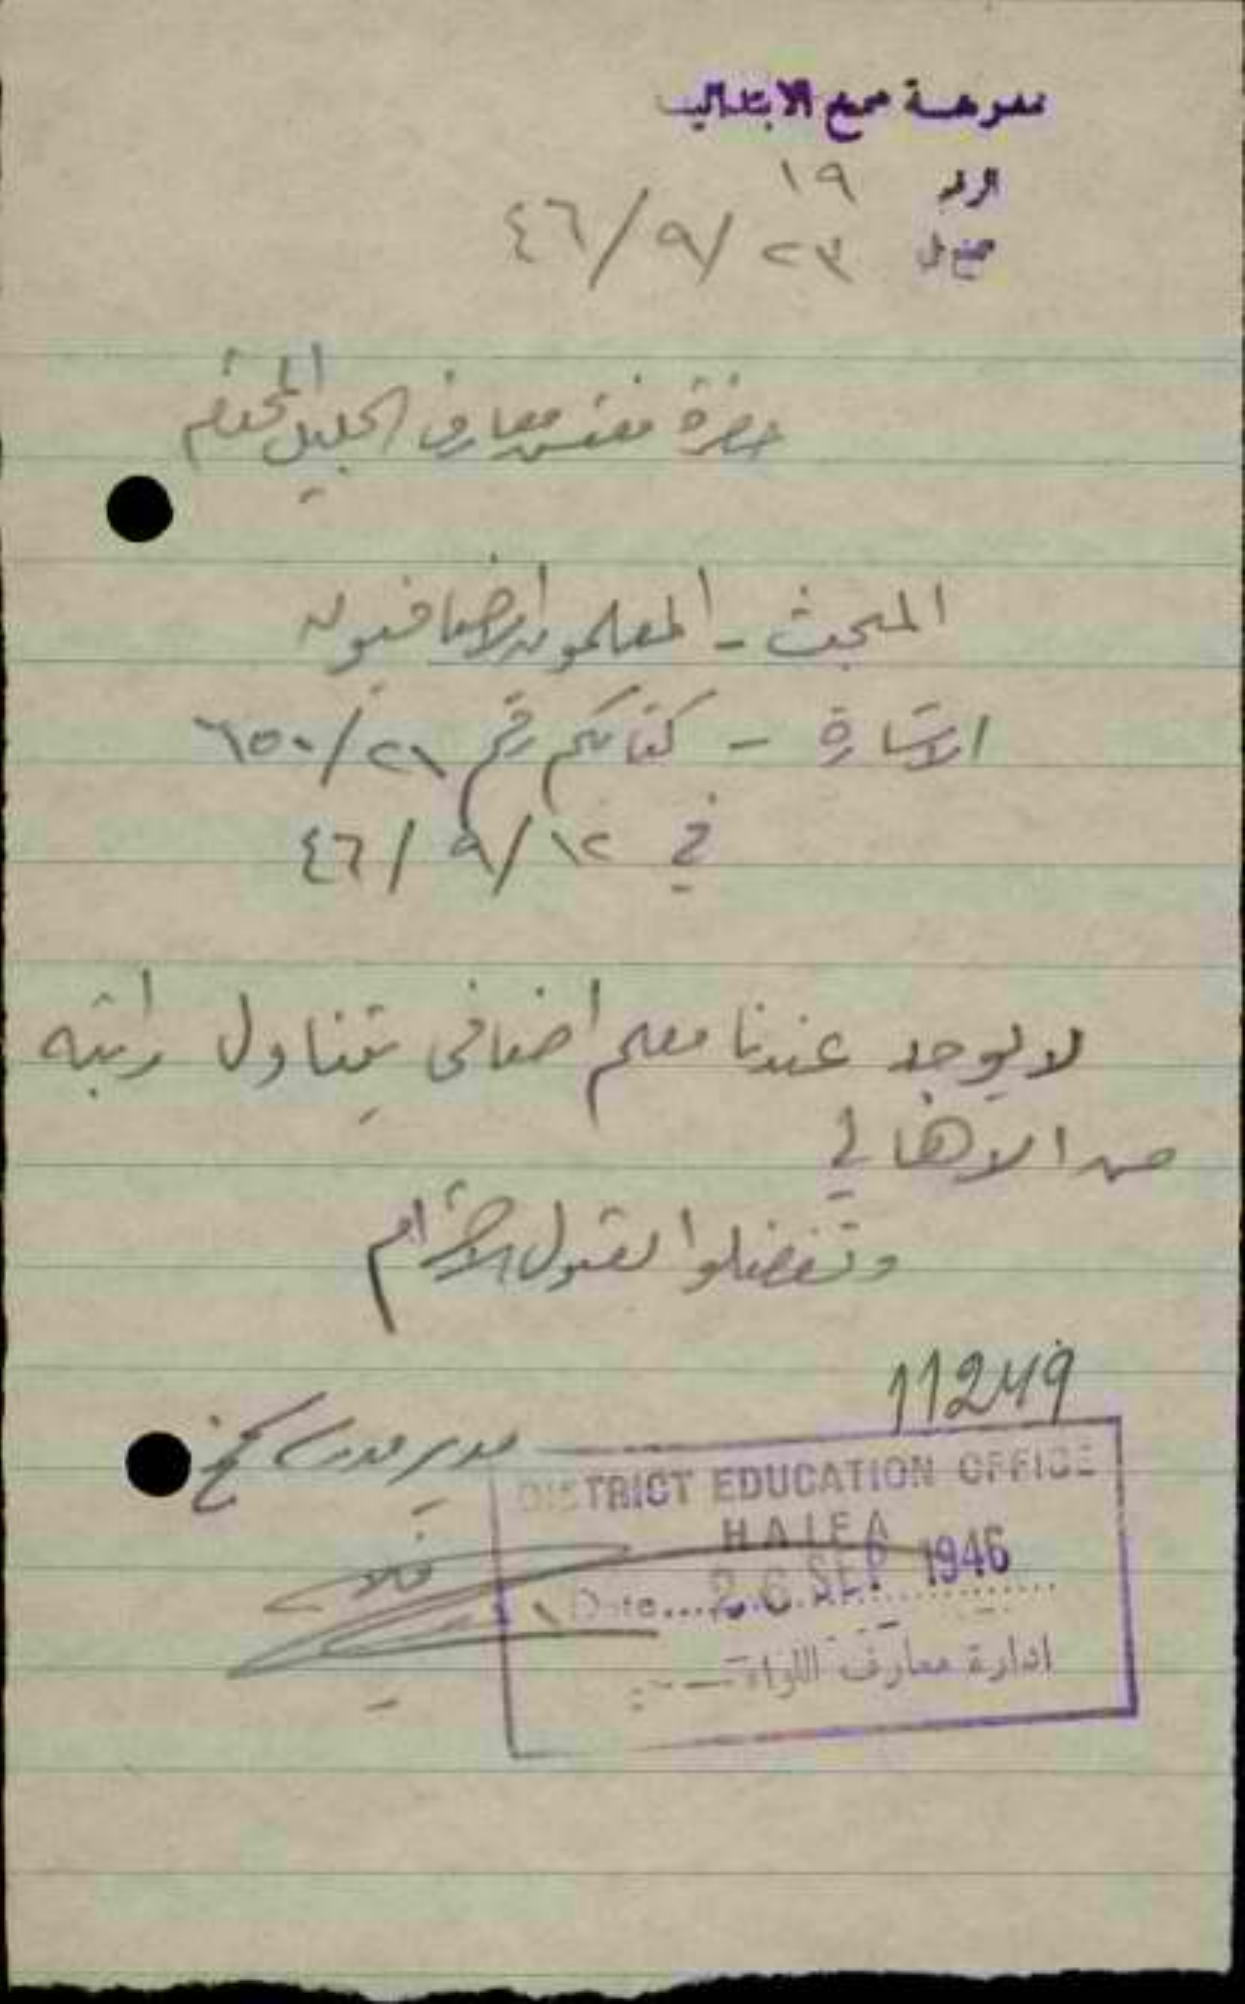 مدرسة سمخ الابتدائية
الرقم ١٩
سمخ في ٢٣/٩/٤٦
حضرة مفتش معارف الجليل المحترم
المبحث - المعلمون الاضافيون
الاشارة - كتابكم رقم ٢١/٦٥٠
في ١٢/٩/٤٦
لا يوجد عندنا معلم اضافي يتناول راتبه
من الاهالي
وتفضلوا بقبول الاحترام
11249
مدير مدرسة سمخ
DISTRICT EDUCATION OFFICE
HAIFA
Date... 26 SEP 1946
ادارة معارف اللواء